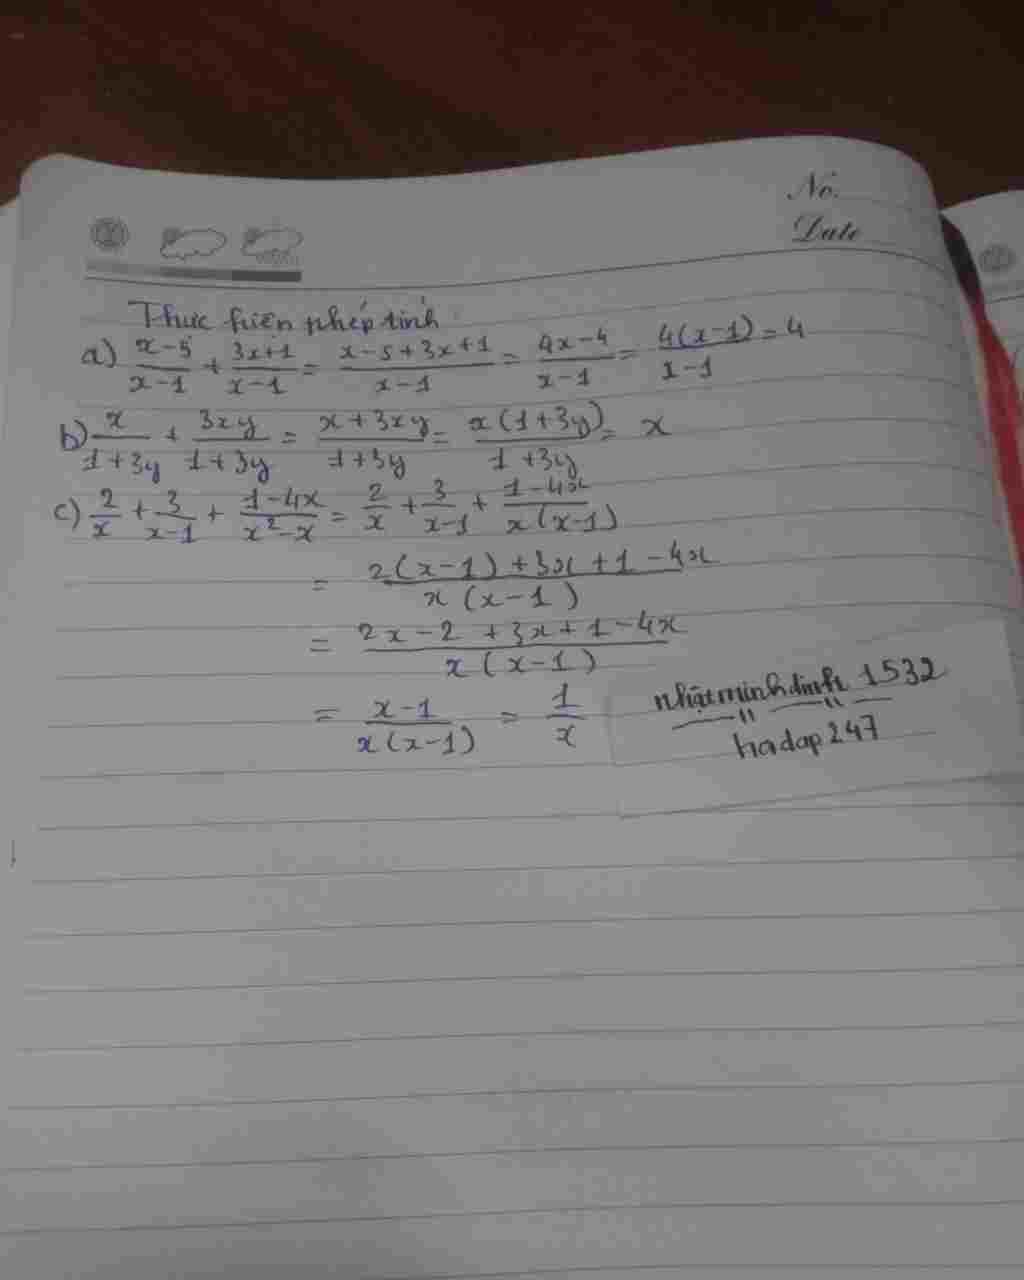 No.
Date
Thực hiện phép tính
a) x-5/x-1 + 3x+1/x-1 = x-5+3x+1/x-1 = 4x-4/x-1 = 4(x-1)/x-1 = 4
b) x/1+3y + 3xy/1+3y = x+3xy/1+3y = x(1+3y)/1+3y = x
c) 2/x + 3/x-1 + 1-4x/x²-x = 2/x + 3/x-1 + 1-4x/x(x-1)
= 2(x-1)+3x+1-4x/x(x-1)
= 2x-2+3x+1-4x/x(x-1)
= x-1/x(x-1) = 1/x
nhậtminhdinh 1532
hodap247